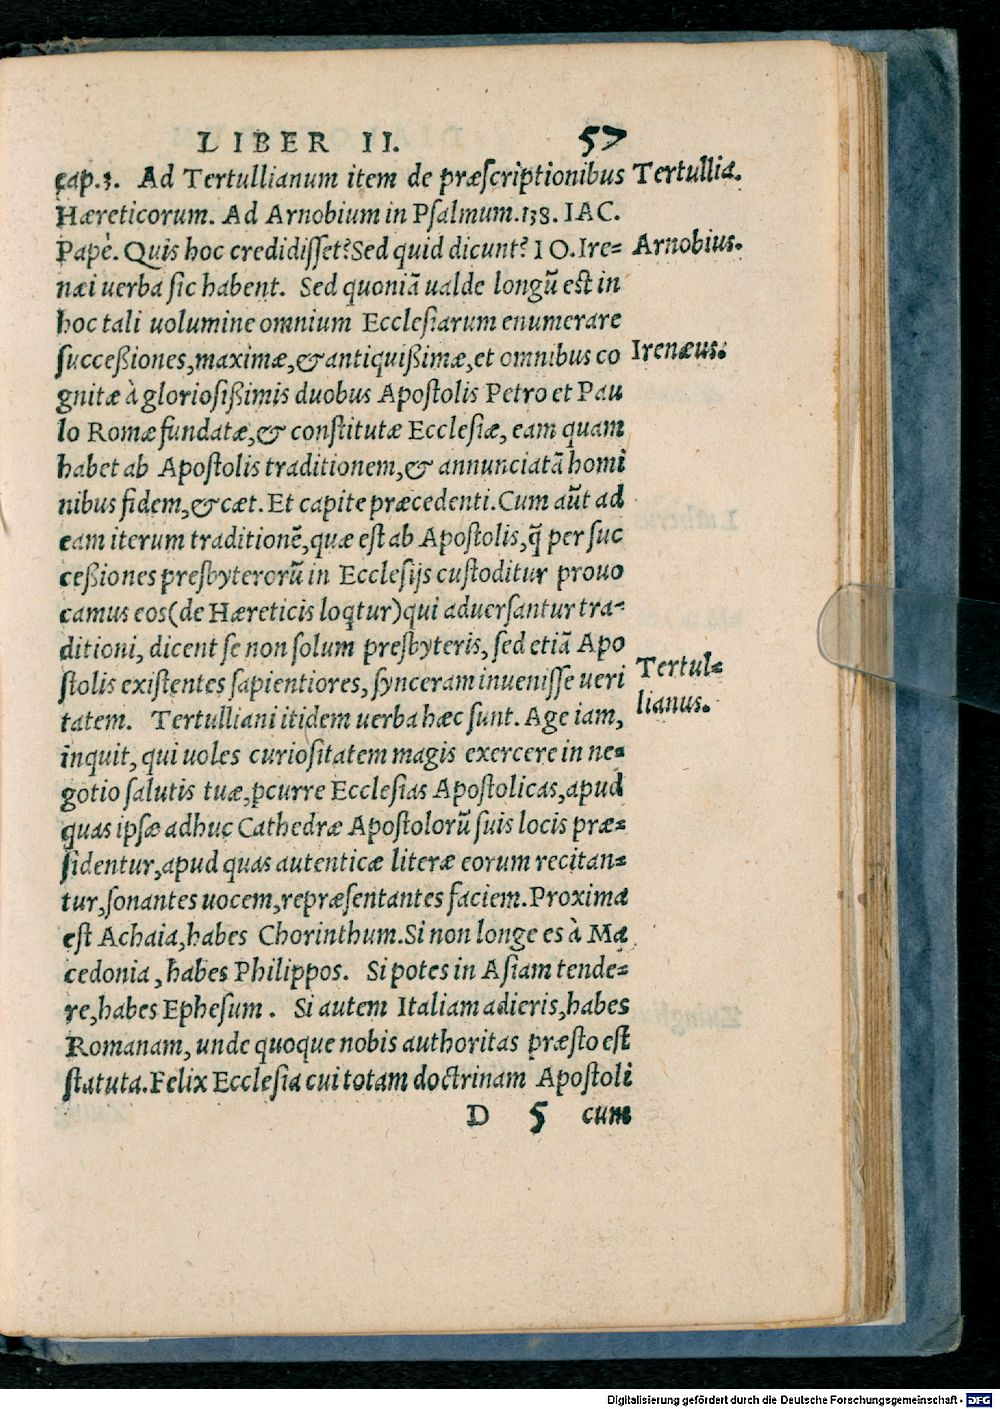 LIBER II. 57
cap.3. Ad Tertullianum item de præſcriptionibus Tertullia.
Hæreticorum. Ad Arnobium in Pſalmum.138. IAC.
Papè. Quis hoc credidiſſet? Sed quid dicunt? IO. Ire= Arnobius.
næi uerba ſic habent. Sed quoniā ualde longū eſt in
hoc tali uolumine omnium Eccleſiarum enumerare
ſucceßiones, maximæ, & antiquißimæ, et omnibus co Irenæus.
gnitæ à glorioſißimis duobus Apoſtolis Petro et Pau
lo Romæ fundatæ, & conſtitutæ Eccleſiæ, eam quam
habet ab Apoſtolis traditionem, & annunciatā homi
nibus fidem, & cæt. Et capite præcedenti. Cum aūt ad
eam iterum traditionē, quæ eſt ab Apoſtolis, q̄ per ſuc
ceßiones preſbyterorū in Eccleſijs cuſtoditur prouo
camus eos (de Hæreticis loqtur) qui aduerſantur tra=
ditioni, dicent ſe non ſolum preſbyteris, ſed etiā Apo
ſtolis exiſtentes ſapientiores, ſynceram inueniſſe ueri Tertul=
tatem. Tertulliani itidem uerba hæc ſunt. Age iam, lianus.
inquit, qui uoles curioſitatem magis exercere in ne=
gotio ſalutis tuæ, ꝑcurre Eccleſias Apoſtolicas, apud
quas ipſæ adhuc Cathedræ Apoſtolorū ſuis locis præ=
ſidentur, apud quas autenticæ literæ eorum recitan=
tur, ſonantes uocem, repræſentantes faciem. Proxima
eſt Achaia, habes Chorinthum. Si non longe es à Ma
cedonia, habes Philippos. Si potes in Aſiam tende=
re, habes Epheſum. Si autem Italiam adieris, habes
Romanam, unde quoque nobis authoritas præſto eſt
ſtatuta. Felix Eccleſia cui totam doctrinam Apoſtoli
D 5 cum
Digitalisierung gefördert durch die Deutsche Forschungsgemeinschaft - DFG